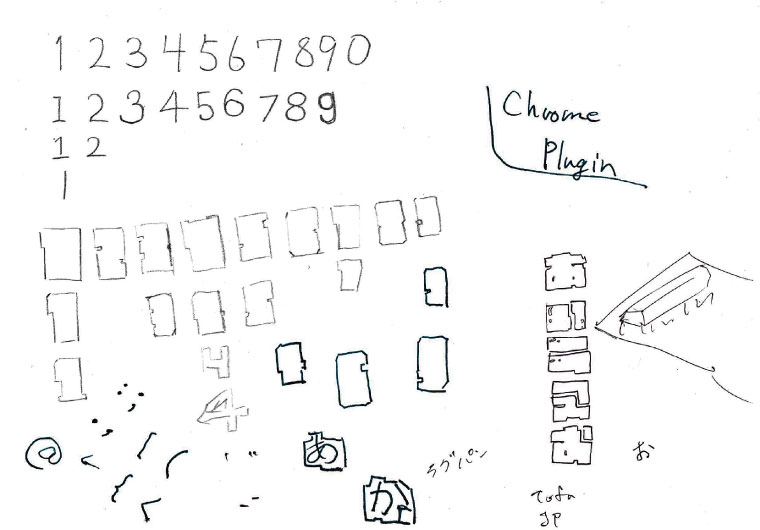 1 2 3 4 5 6 7 8 9 0
1 2 3 4 5 6 7 8 9
1 2
1
Chrome
Plugin
4
@
あ
か
ラグパン
お
Tofu
JP